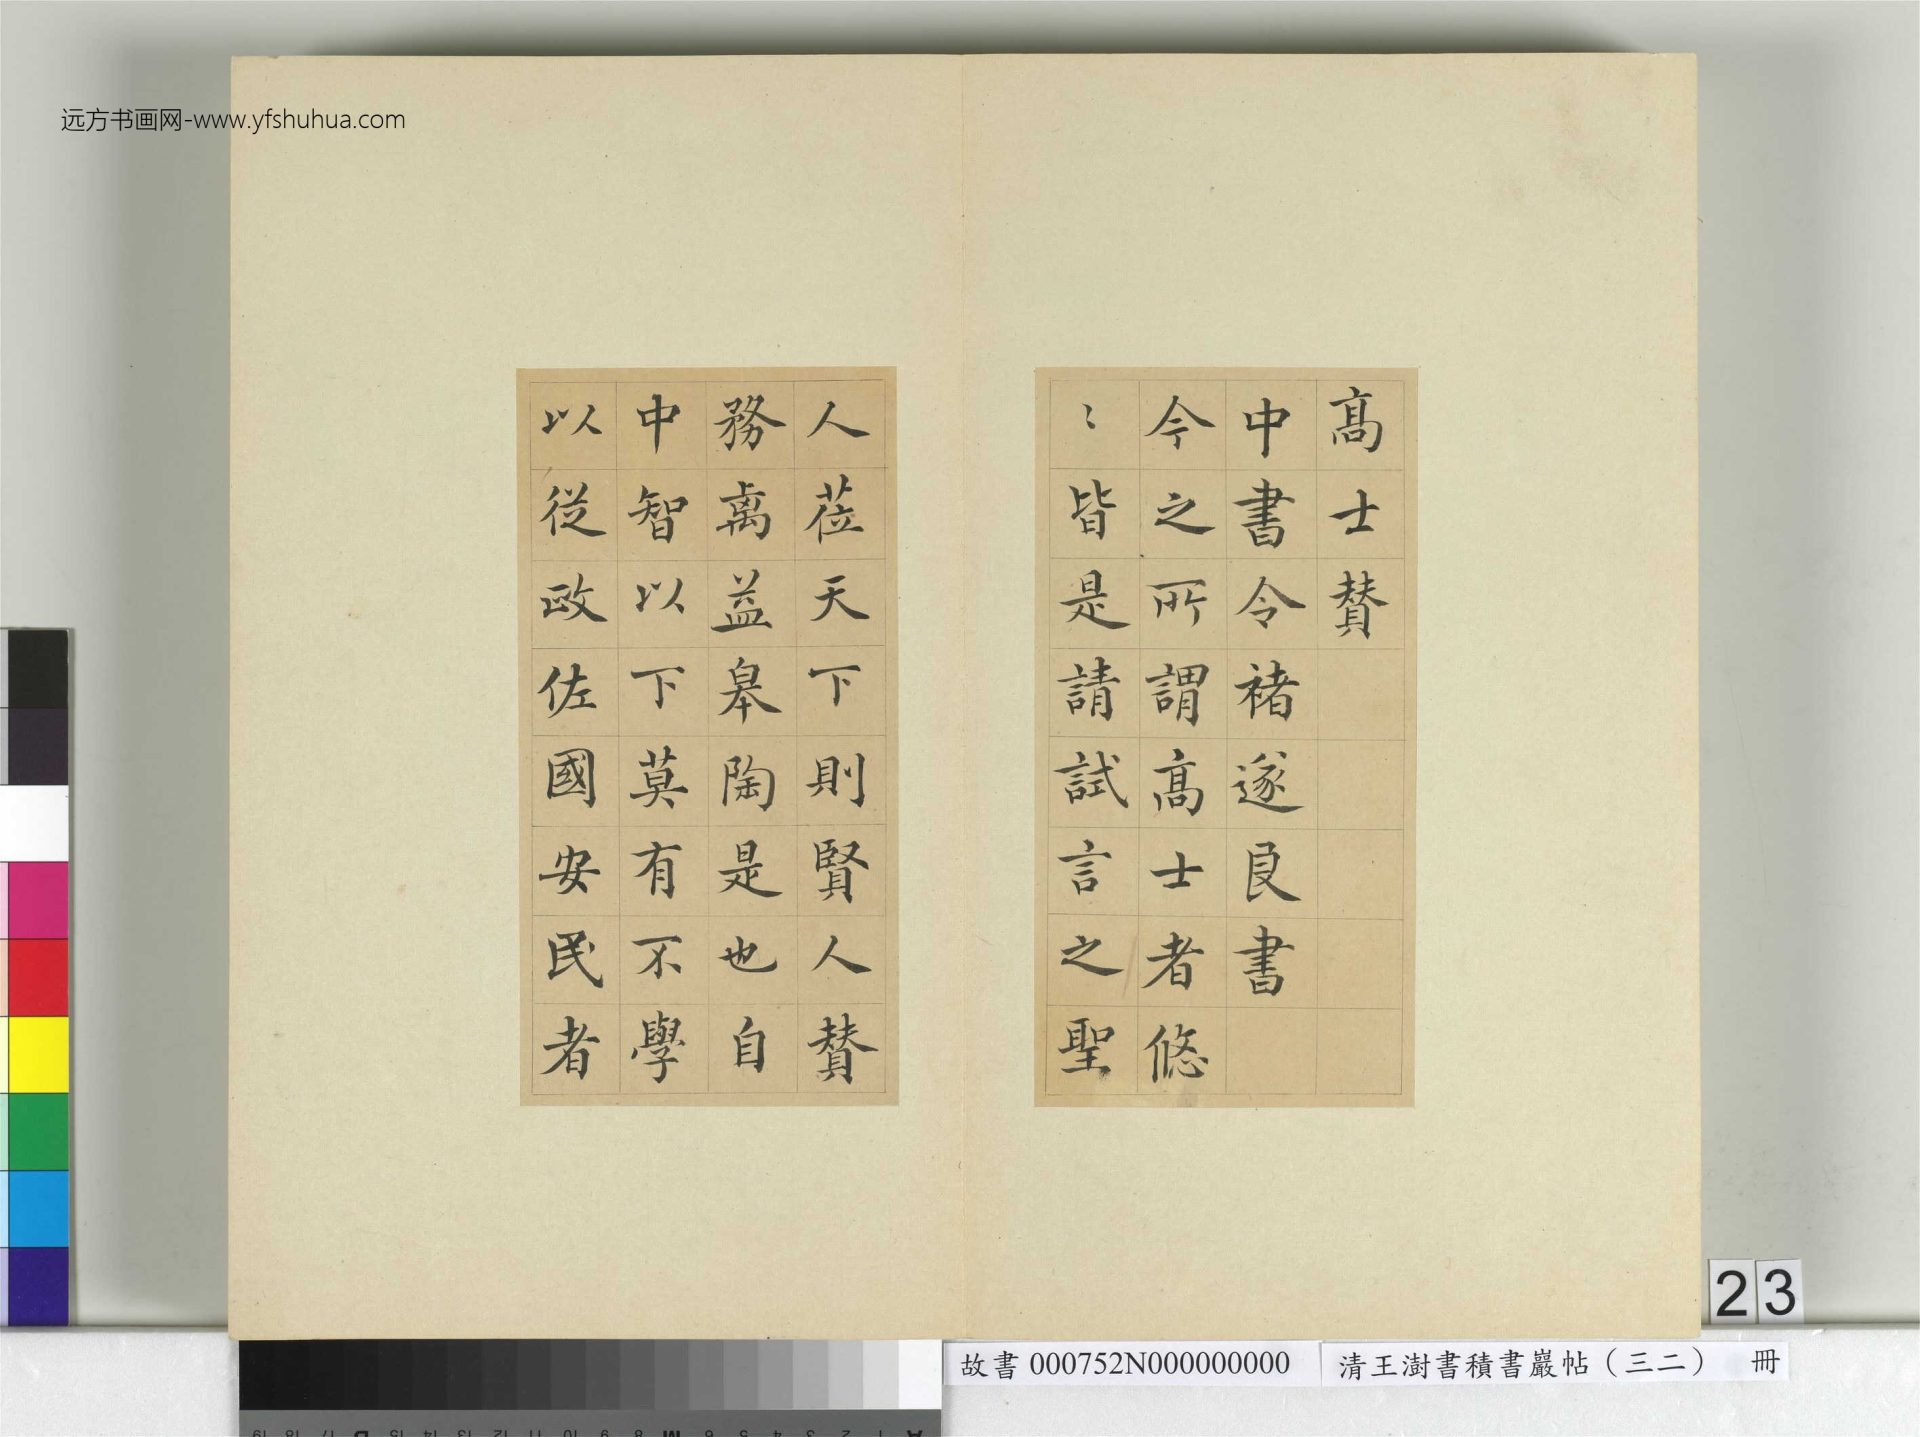 远方书画网-www.yfshuhua.com
髙士賛
中書令褚遂良書
今之所謂髙士者悠
〻皆是請試言之聖
人莅天下則賢人賛
務禼益皋陶是也自
中智以下莫有不學
以從政佐國安民者
23
故書 000752N000000000
清王澍書積書巖帖（三二） 冊